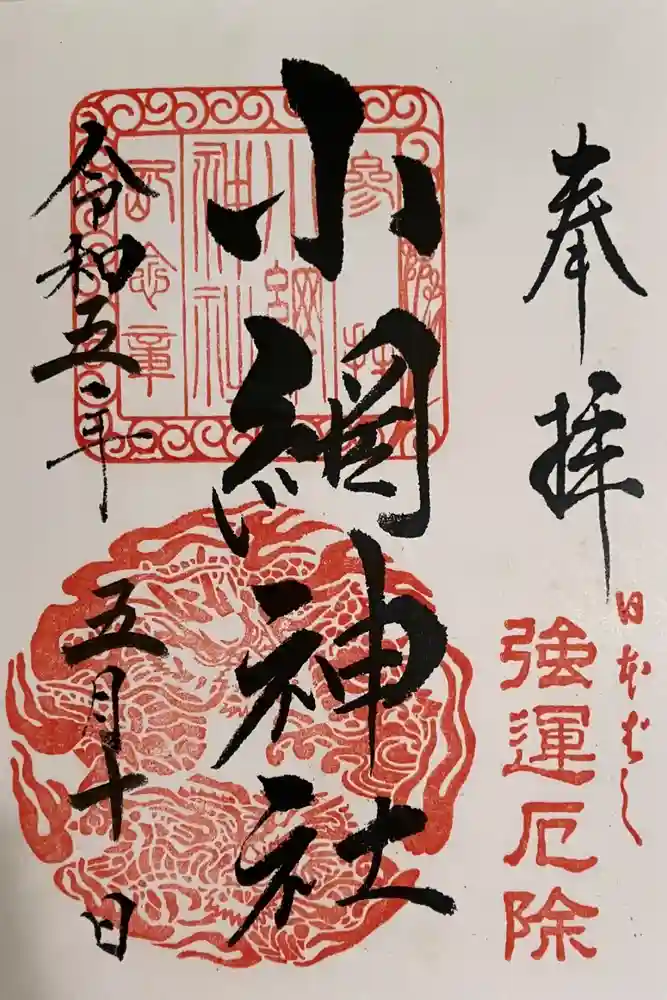 奉拝
日本ばし
強運厄除
小網神社
参拝
小網
神社
記念章
令和五年
五月十日